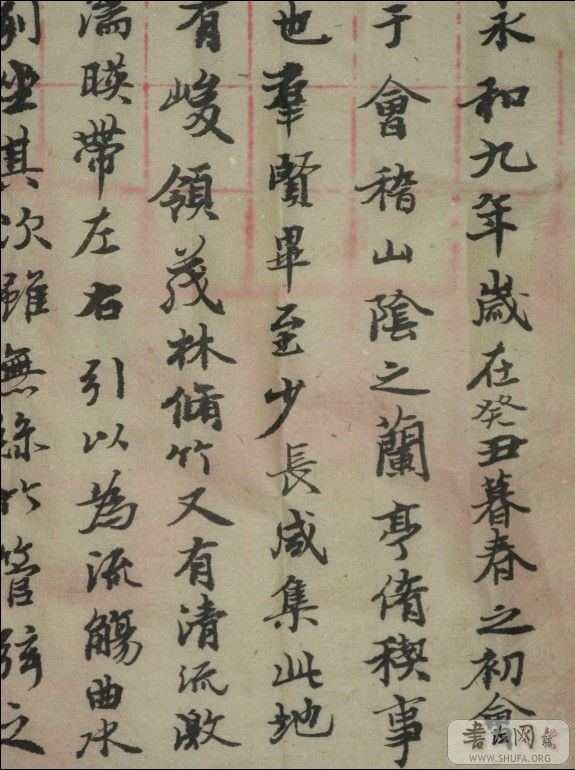 永和九年歲在癸丑暮春之初會
于會稽山陰之蘭亭脩稧事
也羣賢畢至少長咸集此地
有峻領茂林脩竹又有清流激
湍暎帶左右引以為流觴曲水
列坐其次雖無絲竹管弦之
書法网
WWW.SHUFA.ORG